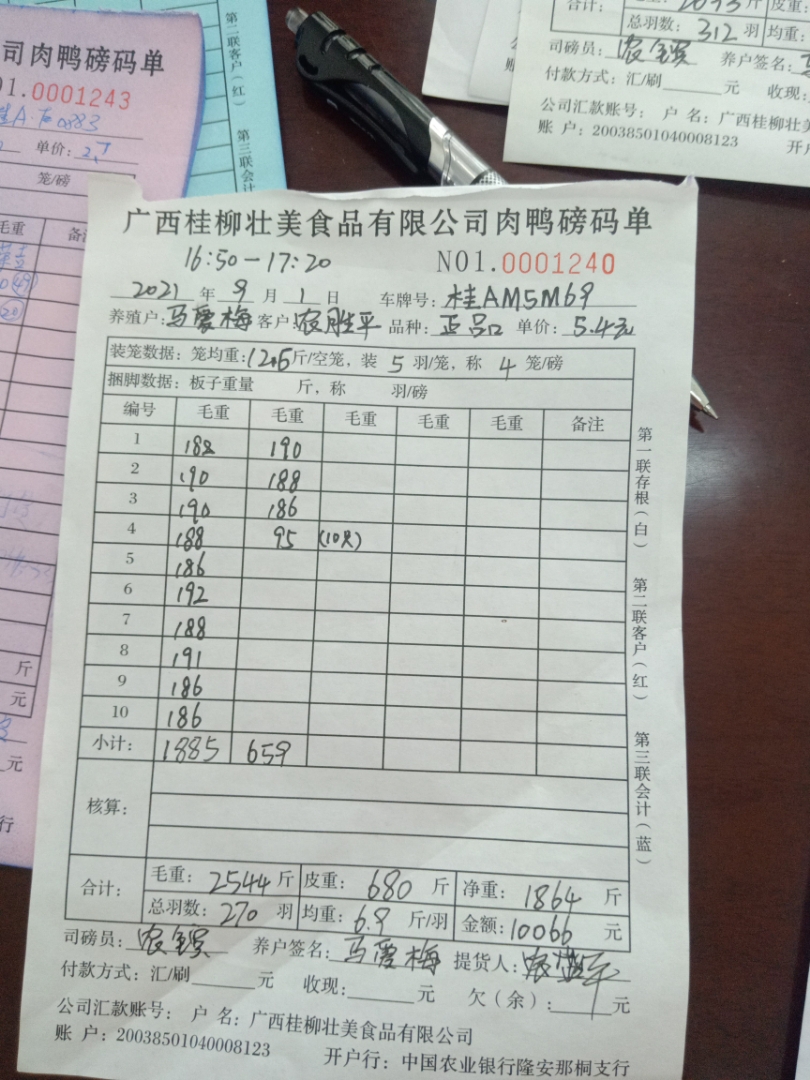 司肉鸭磅码单
01.0001243
单价:
笼/磅
毛重
斤
元
元
行
第二联客户(红)
第三联会计
合计:
斤
皮重:
总羽数: 312 羽
均重:
司磅员:
养户签名:
付款方式: 汇/刷
元
收现:
公司汇款账号: 户 名: 广西桂柳壮美
账 户: 20038501040008123
开户
广西桂柳壮美食品有限公司肉鸭磅码单
16:50-17:20
N01.0001240
2021 年 9 月 1 日 车牌号: 桂AM5M69
养殖户: 马爱梅 客户: 农胜平 品种: 正品 单价: 5.4元
装笼数据: 笼均重: 斤/空笼, 装 5 羽/笼, 称 4 笼/磅
捆脚数据: 板子重量 斤, 称 羽/磅
编号 毛重 毛重 毛重 毛重 毛重 备注
1 188 190
2 190 188
3 190 186
4 188 95 (10只)
5 186
6 192
7 188
8 191
9 186
10 186
小计: 1885 659
核算:
合计: 毛重: 2544 斤 皮重: 680 斤 净重: 1864 斤
总羽数: 270 羽 均重: 6.9 斤/羽 金额: 10066 元
司磅员: 养户签名: 马爱梅 提货人:
付款方式: 汇/刷 元 收现: 元 欠(余): 元
公司汇款账号: 户 名: 广西桂柳壮美食品有限公司
账 户: 20038501040008123 开户行: 中国农业银行隆安那桐支行
第一联存根(白)
第二联客户(红)
第三联会计(蓝)